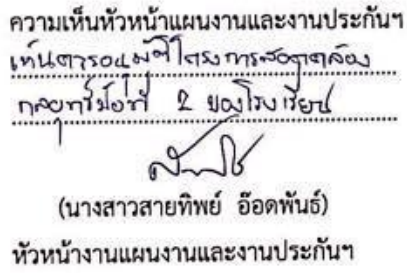 ความเห็นหัวหน้าแผนงานและงานประกันฯ
เห็นควรอนุมัติโครงการสอดคล้อง
กลยุทธ์ข้อที่ 2 ของโรงเรียน
(นางสาวสายทิพย์ อ๊อดพันธ์)
หัวหน้างานแผนงานและงานประกันฯ